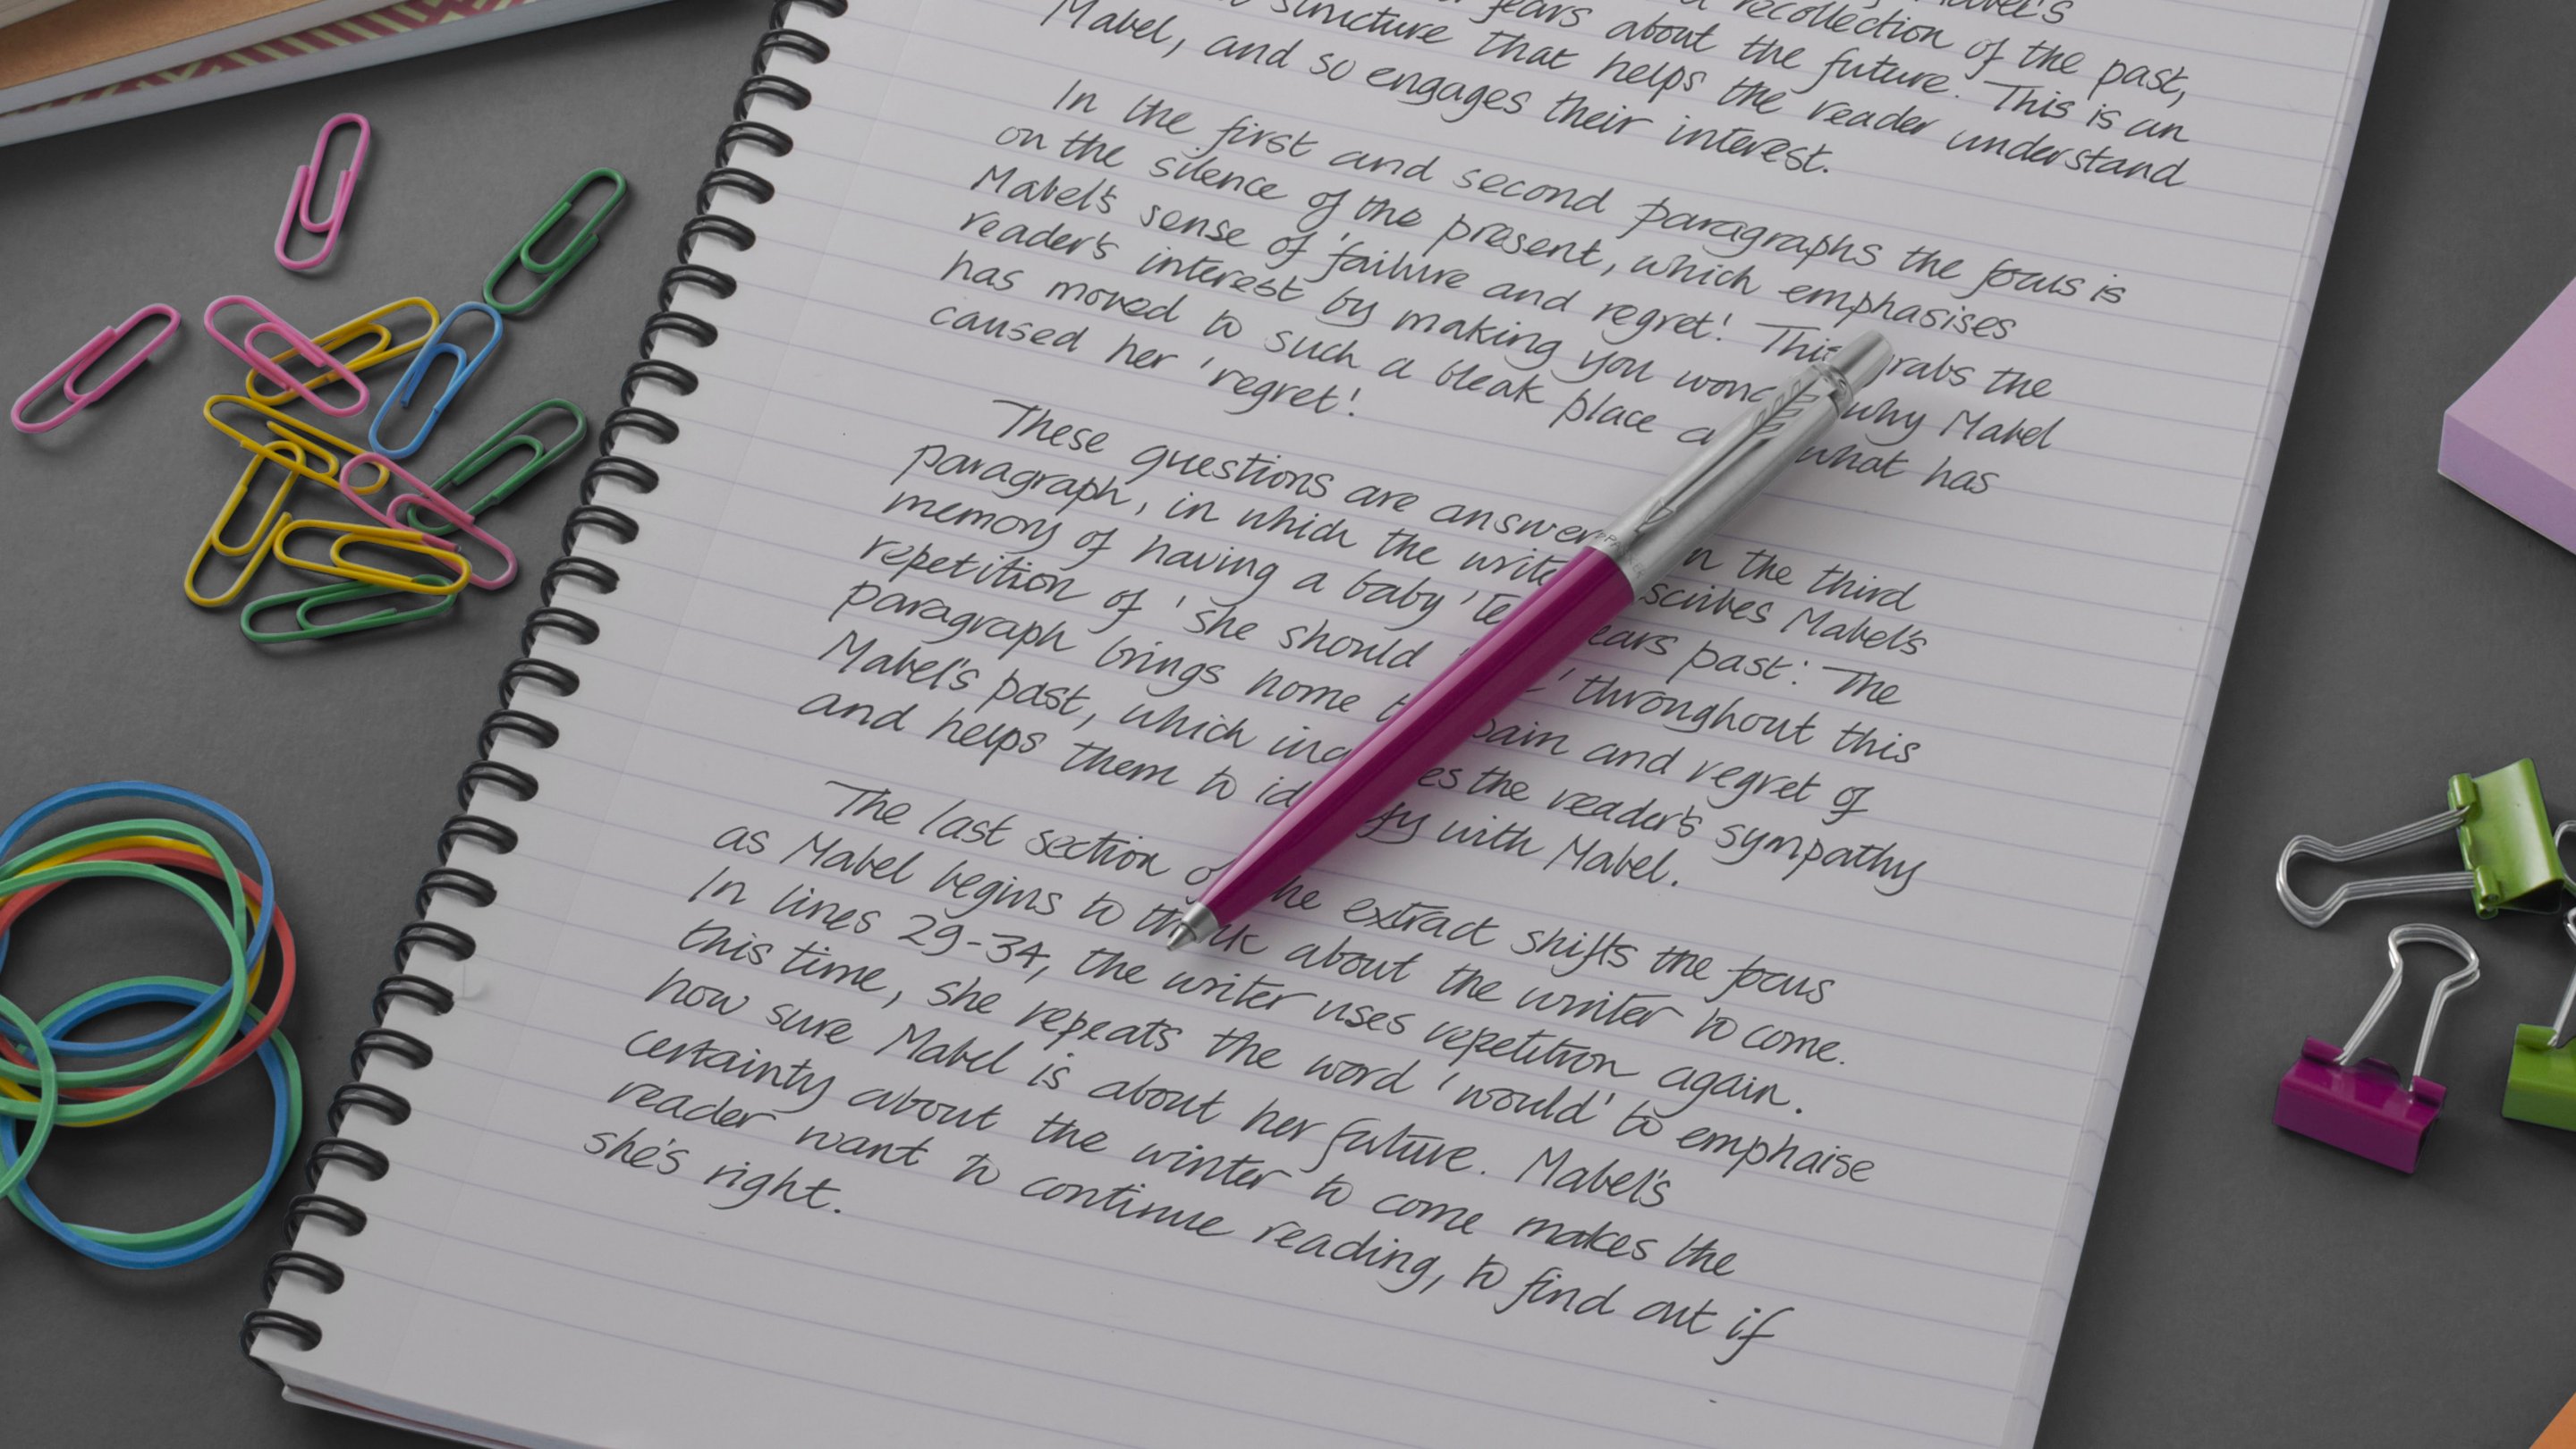 recollection of the past,
fears about the future. This is an
structure that helps the reader understand
Mabel, and so engages their interest.
In the first and second paragraphs the focus is
on the silence of the present, which emphasises
Mabel's sense of 'failure and regret'. This the
reader's interest by making you why Mabel
has moved to such a bleak place what has
caused her 'regret'.
These questions are in the third
paragraph, in which the Mabel's
memory of having a baby past'. The
repetition of 'she should throughout this
paragraph brings home pain and regret of
Mabel's past, which the reader's sympathy
and helps them to with Mabel.
The last section extract shifts the focus
as Mabel begins to about the winter to come.
In lines 29-34, the writer uses repetition again.
this time, she repeats the word 'would' to emphaise
how sure Mabel is about her future. Mabel's
certainty about the winter to come makes the
reader want to continue reading, to find out if
she's right.